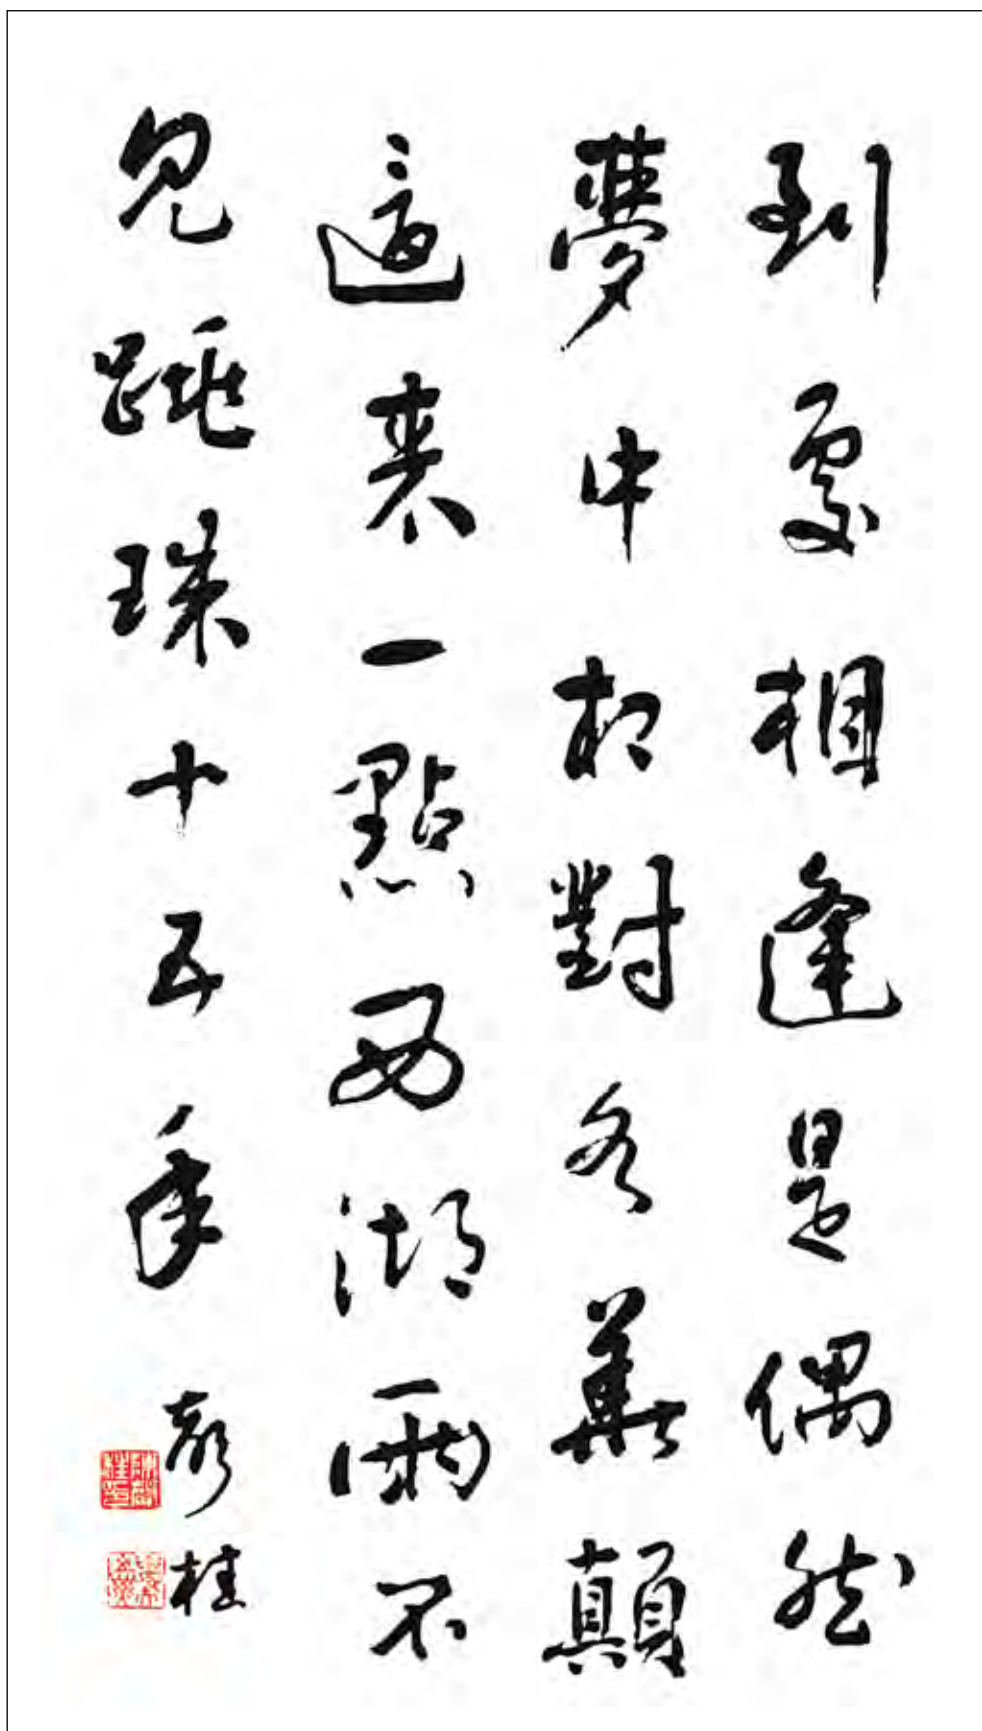 到處相逢是偶然
夢中相對各華顛
還來一點西湖雨不
見跳珠十五年
彭桂